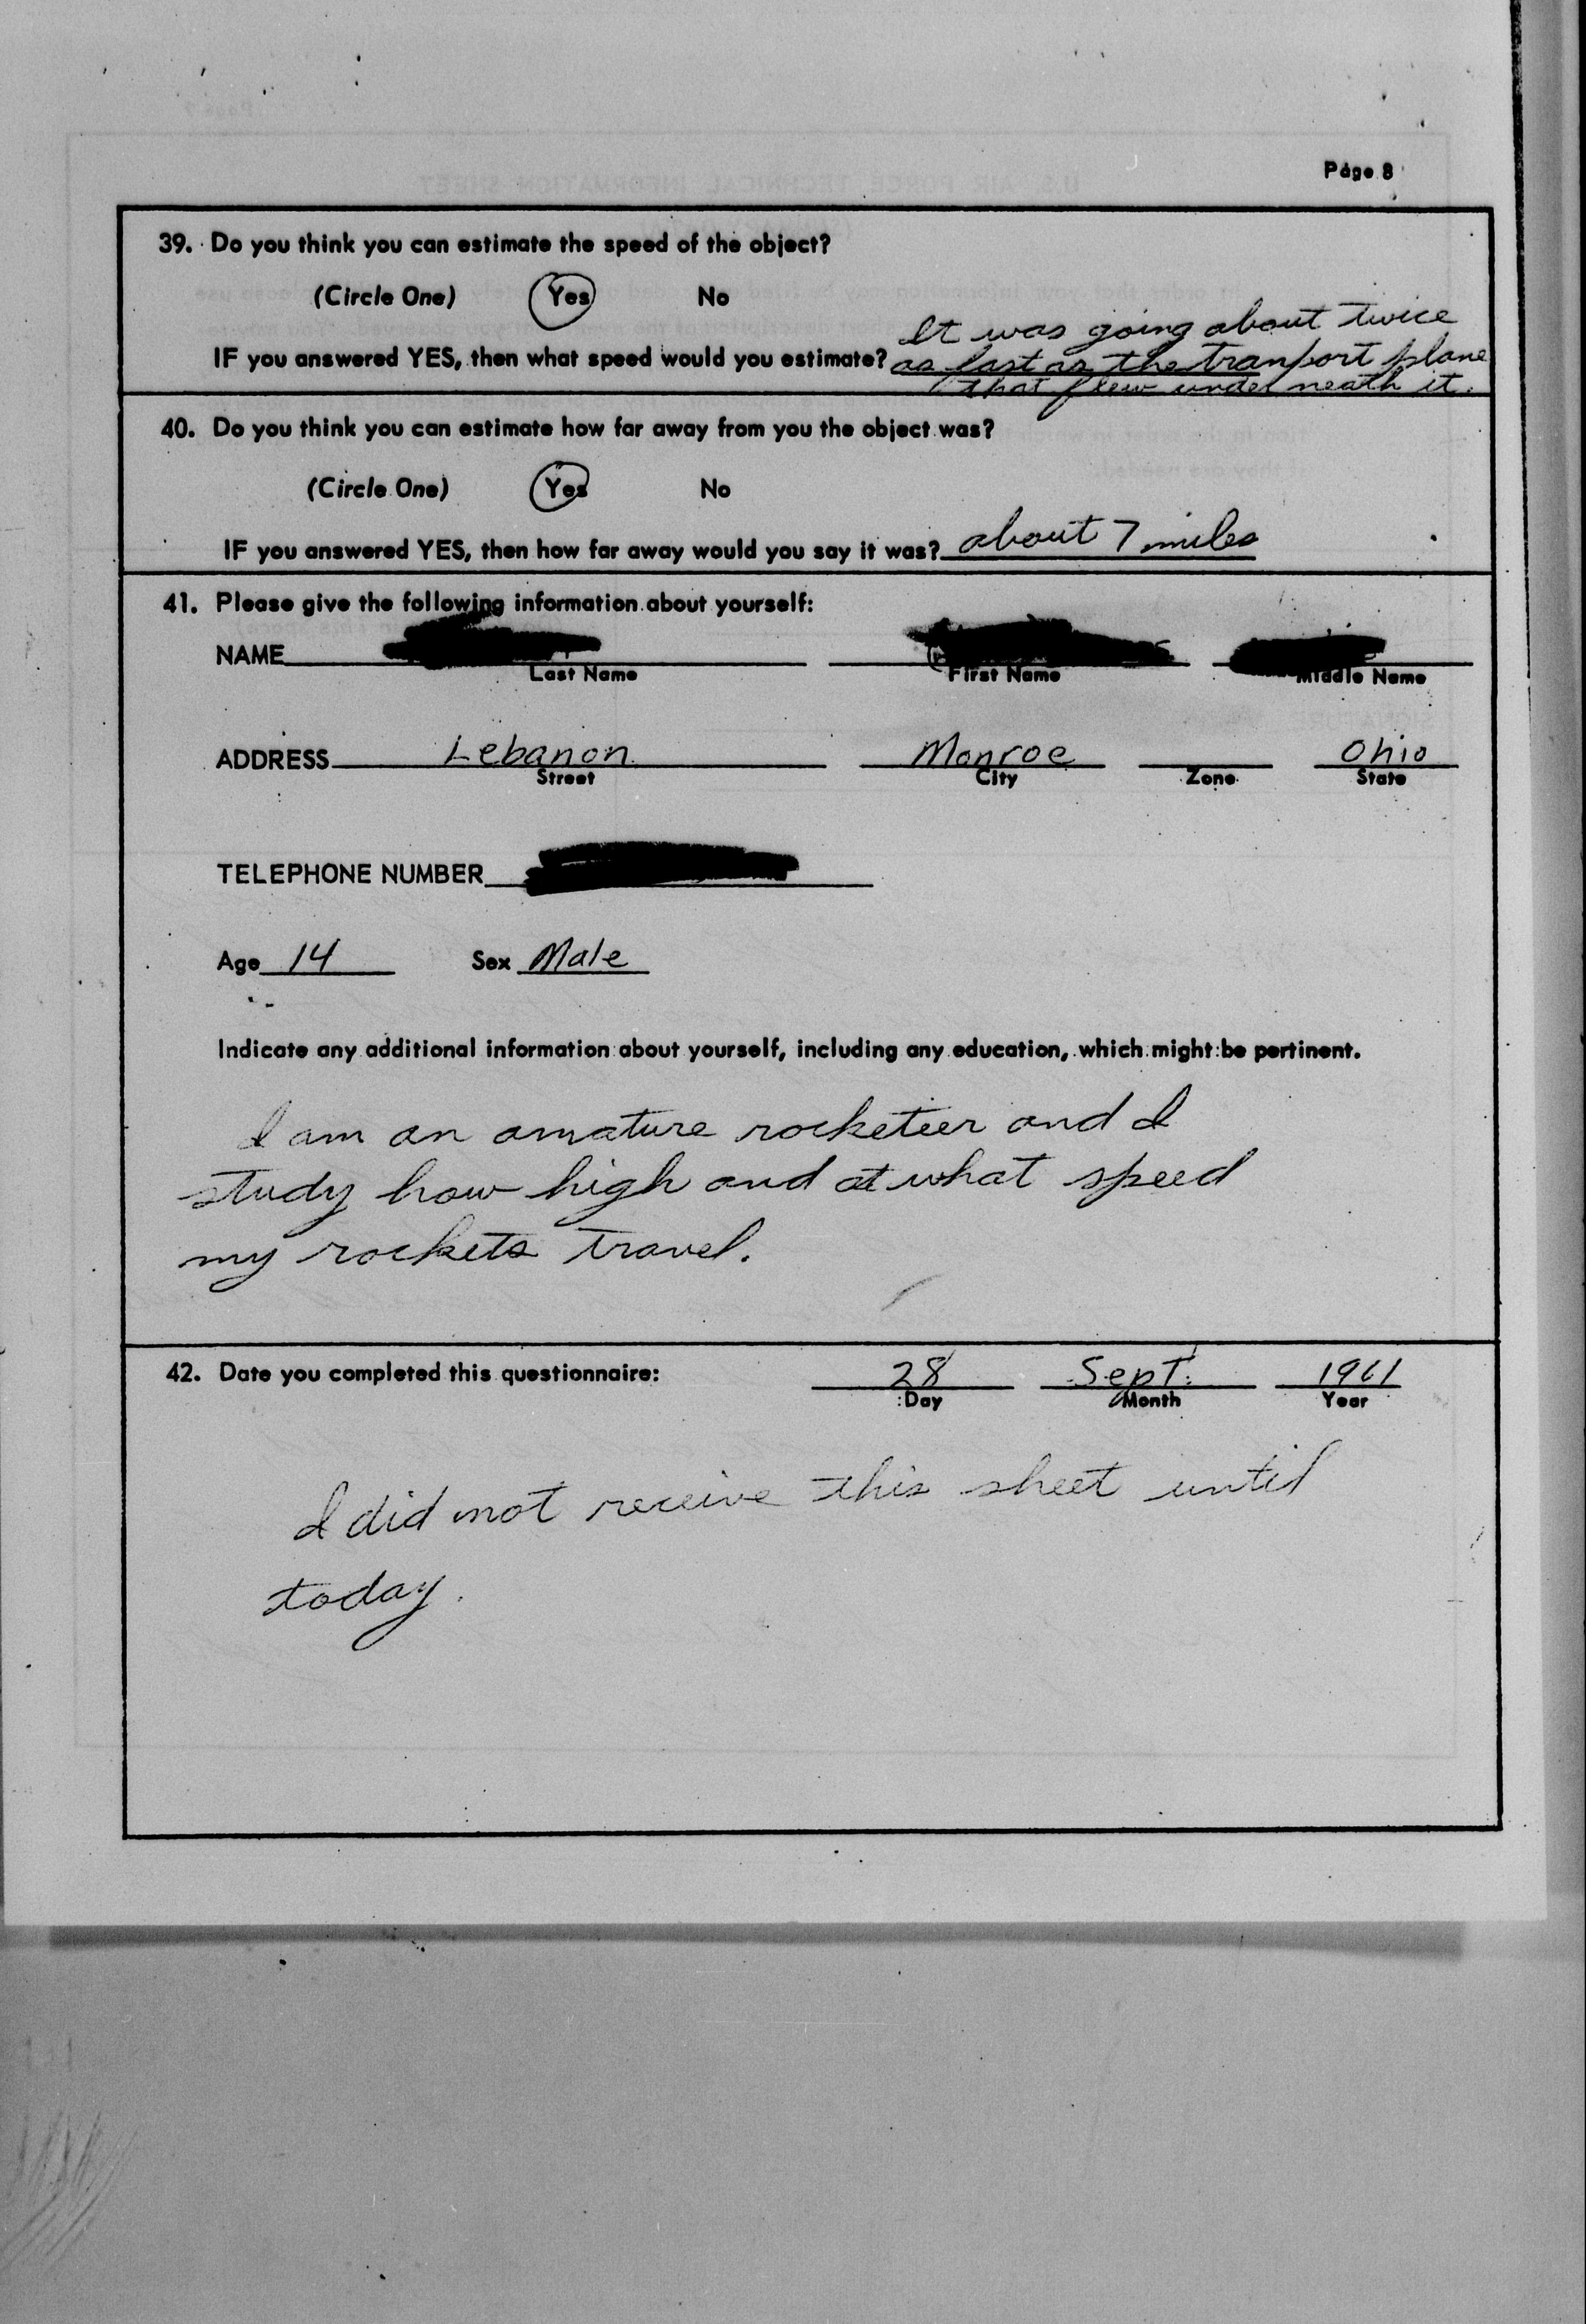 Page 8
39. Do you think you can estimate the speed of the object?
(Circle One) Yes No
It was going about twice
IF you answered YES, then what speed would you estimate? as fast as the tranport plane
that flew under neath it.
40. Do you think you can estimate how far away from you the object was?
(Circle One) Yes No
IF you answered YES, then how far away would you say it was? about 7 miles
41. Please give the following information about yourself:
NAME
Last Name First Name Middle Name
ADDRESS Lebanon Monroe Ohio
Street City Zone State
TELEPHONE NUMBER
Age 14 Sex Male
Indicate any additional information about yourself, including any education, which might be pertinent.
I am an amature rocketeer and I
study how high and at what speed
my rockets travel.
42. Date you completed this questionnaire: 28 Sept. 1961
Day Month Year
I did not receive this sheet until
today.